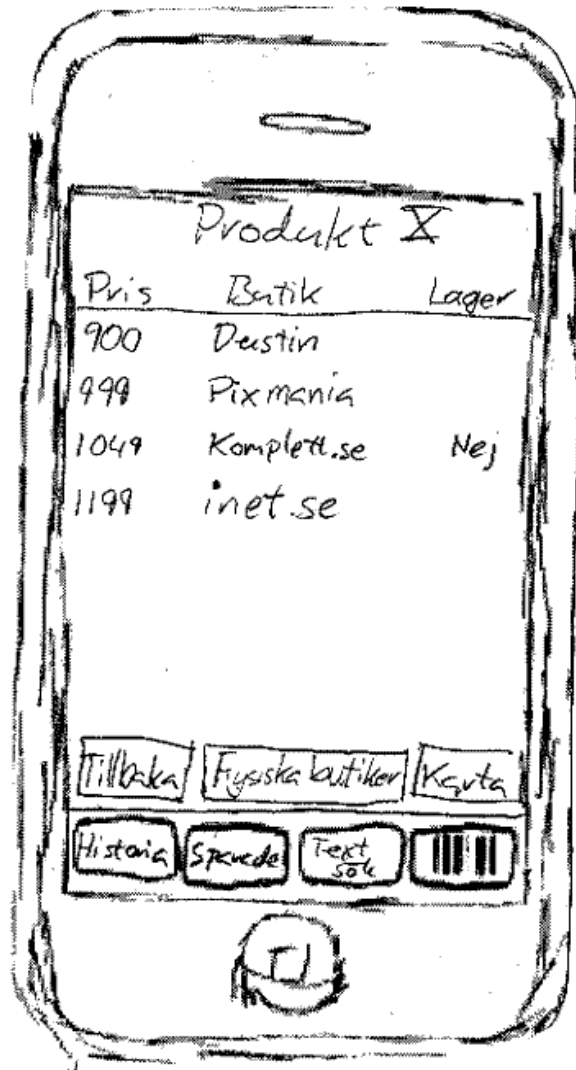 Produkt X
Pris Butik Lager
900 Dustin
999 Pixmania
1049 Komplett.se Nej
1199 inet.se
Tillbaka Fysiska butiker Karta
Historia Sparade Text
sök